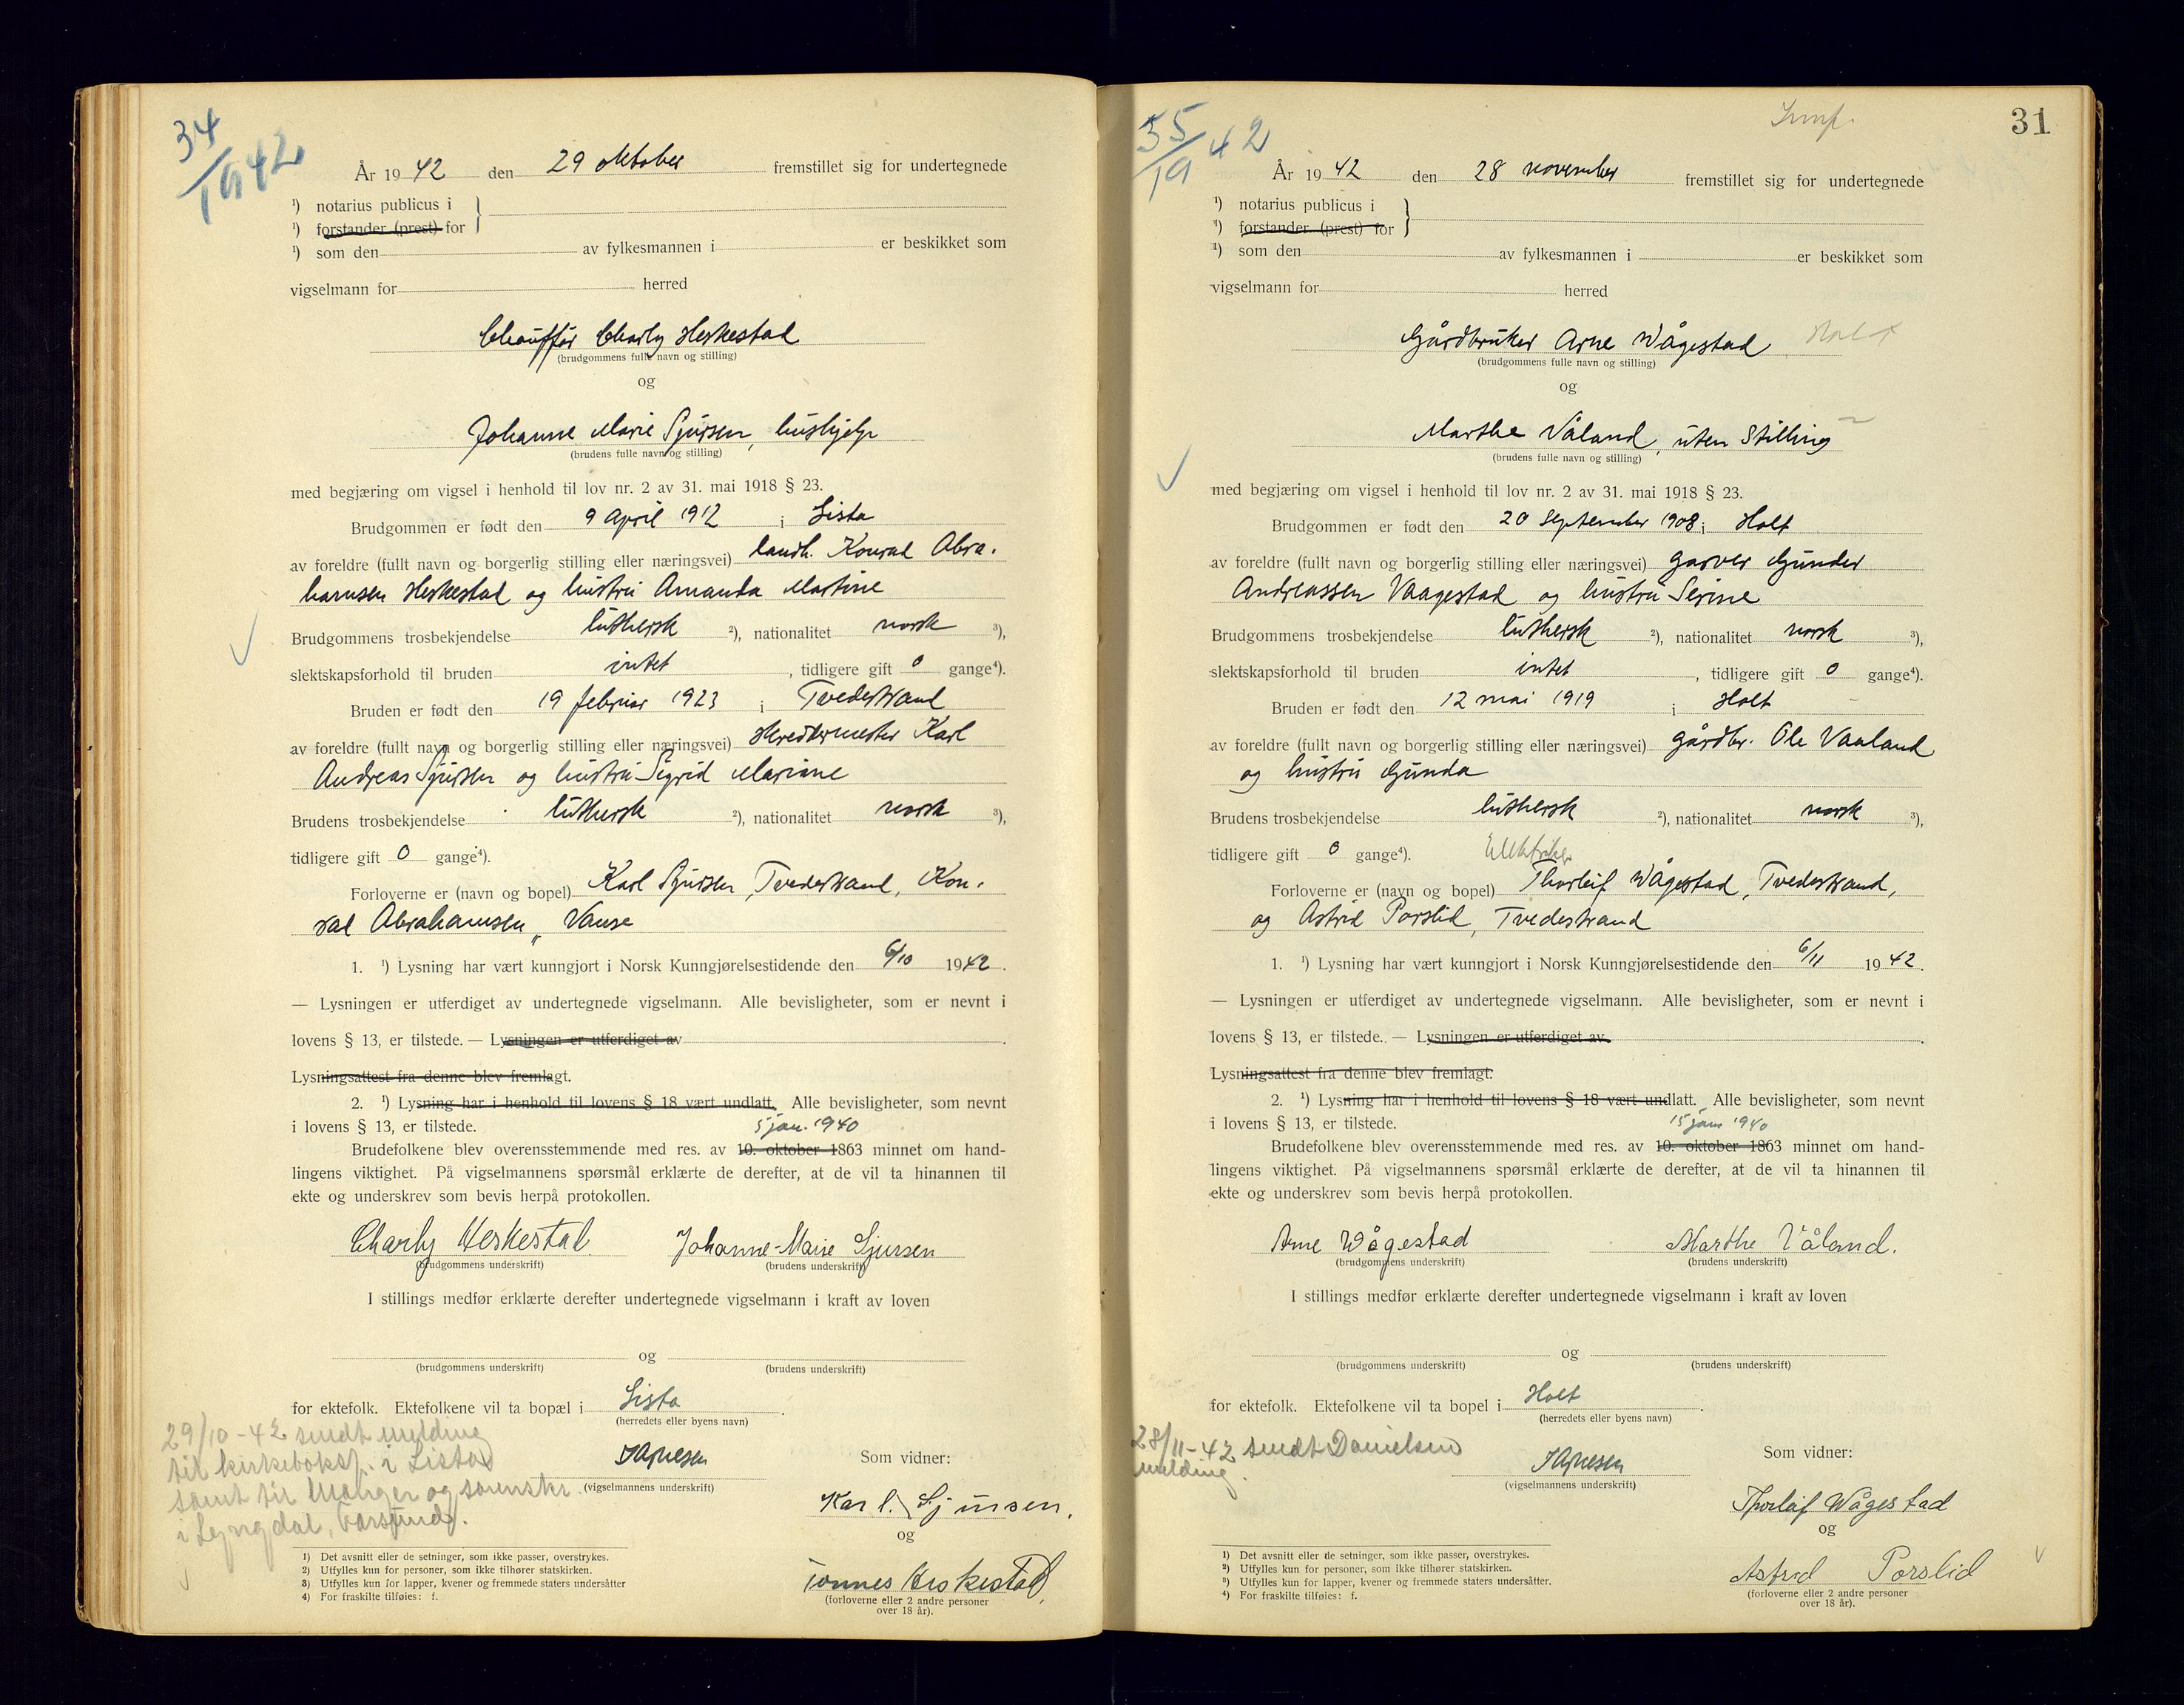 34/1942
År 1942 den 29 oktober fremstillet sig for undertegnede
¹) notarius publicus i
¹) forstander (prest) for
¹) som den av fylkesmannen i er beskikket som
vigselmann for herred
Chauffør Charly Heskestad
(brudgommens fulle navn og stilling)
og
Johanne Marie Sjursen, hushjelp
(brudens fulle navn og stilling)
med begjæring om vigsel i henhold til lov nr. 2 av 31. mai 1918 § 23.
Brudgommen er født den 9 April 1912 i Lista
av foreldre (fullt navn og borgerlig stilling eller næringsvei) landh. Konrad Abra-
hamsen Heskestad og hustru Amanda Martine
Brudgommens trosbekjendelse luthersk ²), nationalitet norsk ³),
slektskapsforhold til bruden intet, tidligere gift 0 gange⁴).
Bruden er født den 19 februar 1923 i Tvedestrand
av foreldre (fullt navn og borgerlig stilling eller næringsvei) skreddermester Karl
Andreas Sjursen og hustru Sigrid Marine
Brudens trosbekjendelse luthersk ²), nationalitet norsk ³),
tidligere gift 0 gange⁴).
Forloverne er (navn og bopel) Karl Sjursen, Tvedestrand, Kon-
rad Abrahamsen, Vanse
1. ¹) Lysning har vært kunngjort i Norsk Kunngjørelsestidende den 6/10 1942.
— Lysningen er utferdiget av undertegnede vigselmann. Alle bevisligheter, som er nevnt i
lovens § 13, er tilstede. — Lysningen er utferdiget av
Lysningsattest fra denne blev fremlagt.
2. ¹) Lysning har i henhold til lovens § 18 vært undlatt. Alle bevisligheter, som nevnt
i lovens § 13, er tilstede. 5 jan. 1940
Brudefolkene blev overensstemmende med res. av 10. oktober 1863 minnet om hand-
lingens viktighet. På vigselmannens spørsmål erklærte de derefter, at de vil ta hinannen til
ekte og underskrev som bevis herpå protokollen.
Charly Heskestad. Johanne-Marie Sjursen
(brudgommens underskrift) (brudens underskrift)
I stillings medfør erklærte derefter undertegnede vigselmann i kraft av loven
og
(brudgommens underskrift) (brudens underskrift)
for ektefolk. Ektefolkene vil ta bopæl i Lista.
(herredets eller byens navn)
29/10-42 sendt melding
til kirkeboksf. i Lista
samt til Manger og sorenskr.
i Lyngdal, Farsund.
(vigselmannens underskrift)
Som vidner:
Karl. Sjursen.
og
Tønnes Heskestad.
(forloverne eller 2 andre personer
over 18 år).
1) Det avsnitt eller de setninger, som ikke passer, overstrykes.
2) Utfylles kun for personer, som ikke tilhører statskirken.
3) Utfylles kun for lapper, kvener og fremmede staters undersåtter
4) For fraskilte tilføies: f.
35/1942
31
År 1942 den 28 november fremstillet sig for undertegnede
¹) notarius publicus i
¹) forstander (prest) for
¹) som den av fylkesmannen i er beskikket som
vigselmann for herred
Gårdbruker Arne Wågestad Holt
(brudgommens fulle navn og stilling)
og
Marthe Våland, uten stilling
(brudens fulle navn og stilling)
med begjæring om vigsel i henhold til lov nr. 2 av 31. mai 1918 § 23.
Brudgommen er født den 20 september 1908 i Holt
av foreldre (fullt navn og borgerlig stilling eller næringsvei) garver Gunder
Andreassen Vaagestad og hustru Serine
Brudgommens trosbekjendelse luthersk ²), nationalitet norsk ³),
slektskapsforhold til bruden intet, tidligere gift 0 gange⁴).
Bruden er født den 12 mai 1919 i Holt
av foreldre (fullt navn og borgerlig stilling eller næringsvei) gårdbr. Ole Vaaland
og hustru Gunda
Brudens trosbekjendelse luthersk ²), nationalitet norsk ³),
tidligere gift 0 gange⁴).
Forloverne er (navn og bopel) Thorleif Wågestad, Tvedestrand,
og Astrid Porslid, Tvedestrand
1. ¹) Lysning har vært kunngjort i Norsk Kunngjørelsestidende den 6/11 1942.
— Lysningen er utferdiget av undertegnede vigselmann. Alle bevisligheter, som er nevnt i
lovens § 13, er tilstede. — Lysningen er utferdiget av
Lysningsattest fra denne blev fremlagt.
2. ¹) Lysning har i henhold til lovens § 18 vært undlatt. Alle bevisligheter, som nevnt
i lovens § 13, er tilstede. 15 jan 1940
Brudefolkene blev overensstemmende med res. av 10. oktober 1863 minnet om hand-
lingens viktighet. På vigselmannens spørsmål erklærte de derefter, at de vil ta hinannen til
ekte og underskrev som bevis herpå protokollen.
Arne Wågestad Marthe Våland.
(brudgommens underskrift) (brudens underskrift)
I stillings medfør erklærte derefter undertegnede vigselmann i kraft av loven
og
(brudgommens underskrift) (brudens underskrift)
for ektefolk. Ektefolkene vil ta bopel i Holt.
(herredets eller byens navn)
28/11-42 sendt Danielsen
melding.
(vigselmannens underskrift)
Som vidner:
Thorleif Wågestad
og
Astrid Porslid
(forloverne eller 2 andre personer
over 18 år).
1) Det avsnitt eller de setninger, som ikke passer, overstrykes.
2) Utfylles kun for personer, som ikke tilhører statskirken.
3) Utfylles kun for lapper, kvener og fremmede staters undersåtter.
4) For fraskilte tilføies: f.